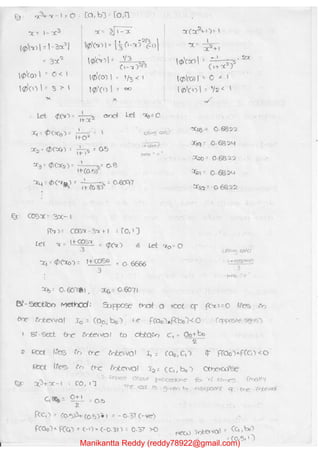 Ex: x³+x-1=0 : [a,b] = [0,1]
x = 1-x³
|φ'(x)| = |-3x²|
= 3x²
|φ'(0)| = 0 < 1
|φ'(1)| = 3 > 1
x = ∛1-x
|φ'(0)| = 1/3 < 1
|φ'(1)| = ∞
x(x²+1)=1
x = 1/x²+1
|φ'(0)| = 0 < 1
|φ'(1)| = 1/2 < 1
Let φ(x) = 1/1+x² and Let x₀=0
x₁ = φ(x₀) = 1/1+0² = 1
x₂ = φ(x₁) = 1/1+1² = 0.5
x₃ = φ(x₂) = 1/1+(0.5)² = 0.8
x₄ = φ(x₃) = 1/1+(0.8)² = 0.6097
0.6822
0.6824
0.6822
0.6824
0.6822
Ex: cosx = 3x-1
f(x) = cosx-3x+1 : [0,1]
Let x = 1+cosx/3 = φ(x) & Let x₀=0
x₁ = φ(x₀) = 1+cos0/3 = 0.6666
x₅ = 0.6071, x₆ = 0.6071
Bi-Section Method: Suppose that a root of f(x)=0 lies in
the interval I₀ = (a₀,b₀) i.e f(a₀)*f(b₀)<0 (opposite signs)
1 Bi-sect the interval to obtain c₁ = a₀+b₀/2
2 Root lies in the interval I₁ = (a₀,c₁) if f(a₀)*f(c₁)<0
Root lies in the interval I₁ = (c₁,b₀) Otherwise
Ex: x³+x-1 : [0,1]
c₁ = 0+1/2 = 0.5
f(c₁) = (0.5)³+(0.5)-1 = -0.37 (-ve)
f(a₀)*f(c₁) = (-1)*(-0.37) = 0.37 >0
new interval = (c₁,b₀)
= (0.5,1)
Manikantta Reddy (reddy78922@gmail.com)